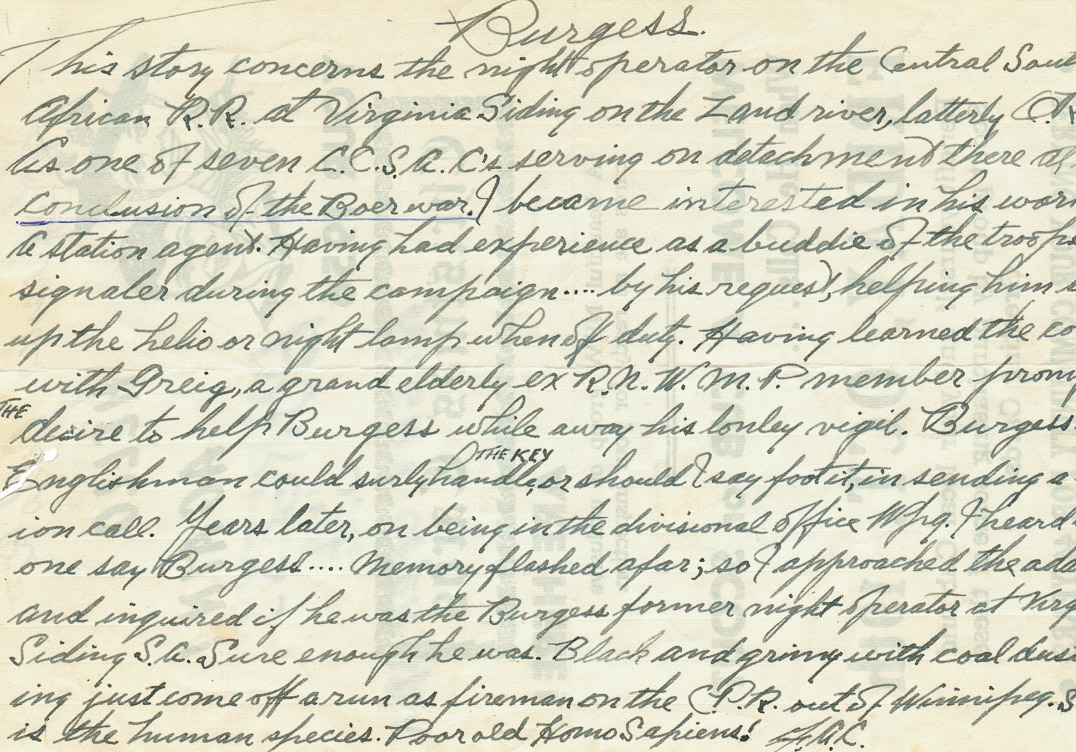 Burgess.
This story concerns the night operator on the Central Sout
African R.R. at Virginia Siding on the Zand river, latterly
As one of seven C.C.S.A.C's serving on detachment there at
conclusion of the Boer war. I became interested in his wor
a station agent. Having had experience as a buddie of the troops
signaler during the campaign.... by his request, helping him
up the helio or night lamp when off duty. Having learned the co
with Greig, a grand elderly ex R.N.W.M.P. member from
THE
desire to help Burgess while away his lonley vigil. Burgess
THE KEY
Englishman could surly handle, or should I say foot it, in sending a
ion call. Years later, on being in the divisional office Wpg. I heard
one say Burgess.... Memory flashed afar; so I approached the
and inquired if he was the Burgess former night operator at Virg
Siding S.A. Sure enough he was. Black and grimy with coal dus
ing just come off a run as fireman on the C.P.R. out of Winnipeg. S
is the human species. Poor old Homo Sapiens!